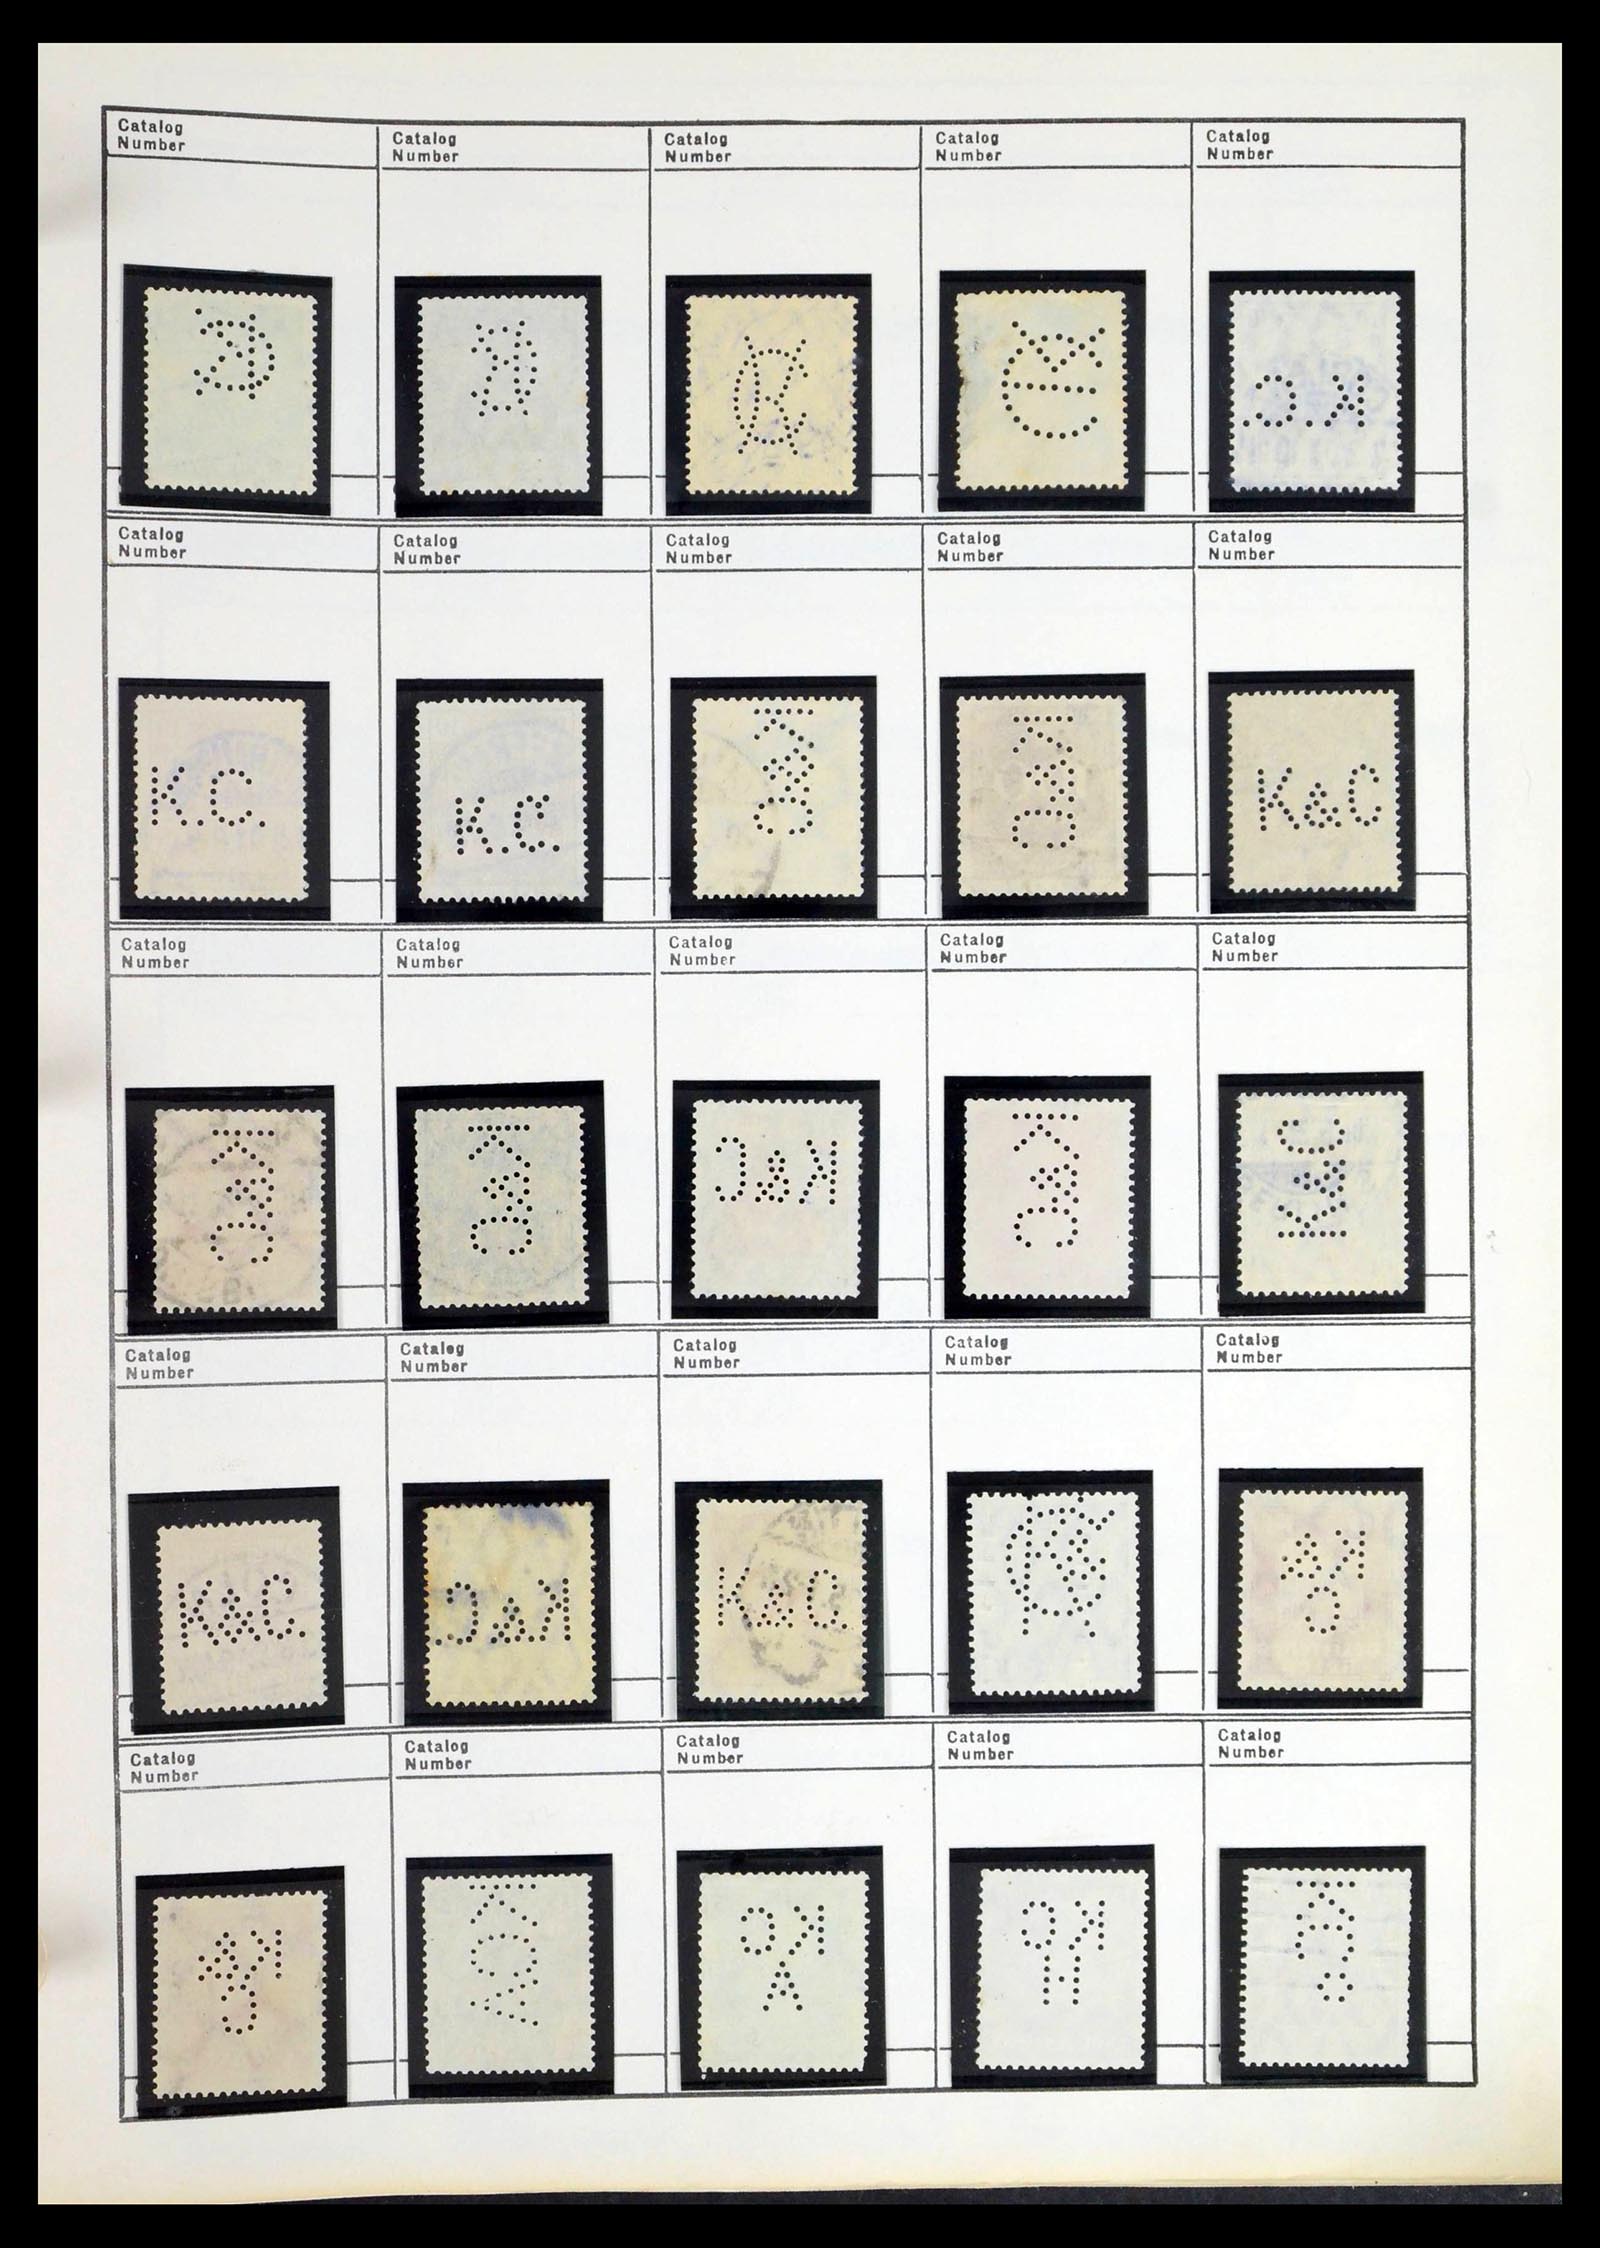 Catalog Catalog Catalog Catalog Catalog
Number Number Number Number Number
K.C.
Catalog Catalog Catalog Catalog Catalog
Number Number Number Number Number
K.C. K.C. K&C K&C K&C
Catalog Catalog Catalog Catalog Catalog
Number Number Number Number Number
K&C K&C K&C K&C K&C
Catalog Catalog Catalog Catalog Catalog
Number Number Number Number Number
K&C. K&C. K&C. K&
C
Catalog Catalog Catalog Catalog Catalog
Number Number Number Number Number
K& KCA KC KC KCo
C A H